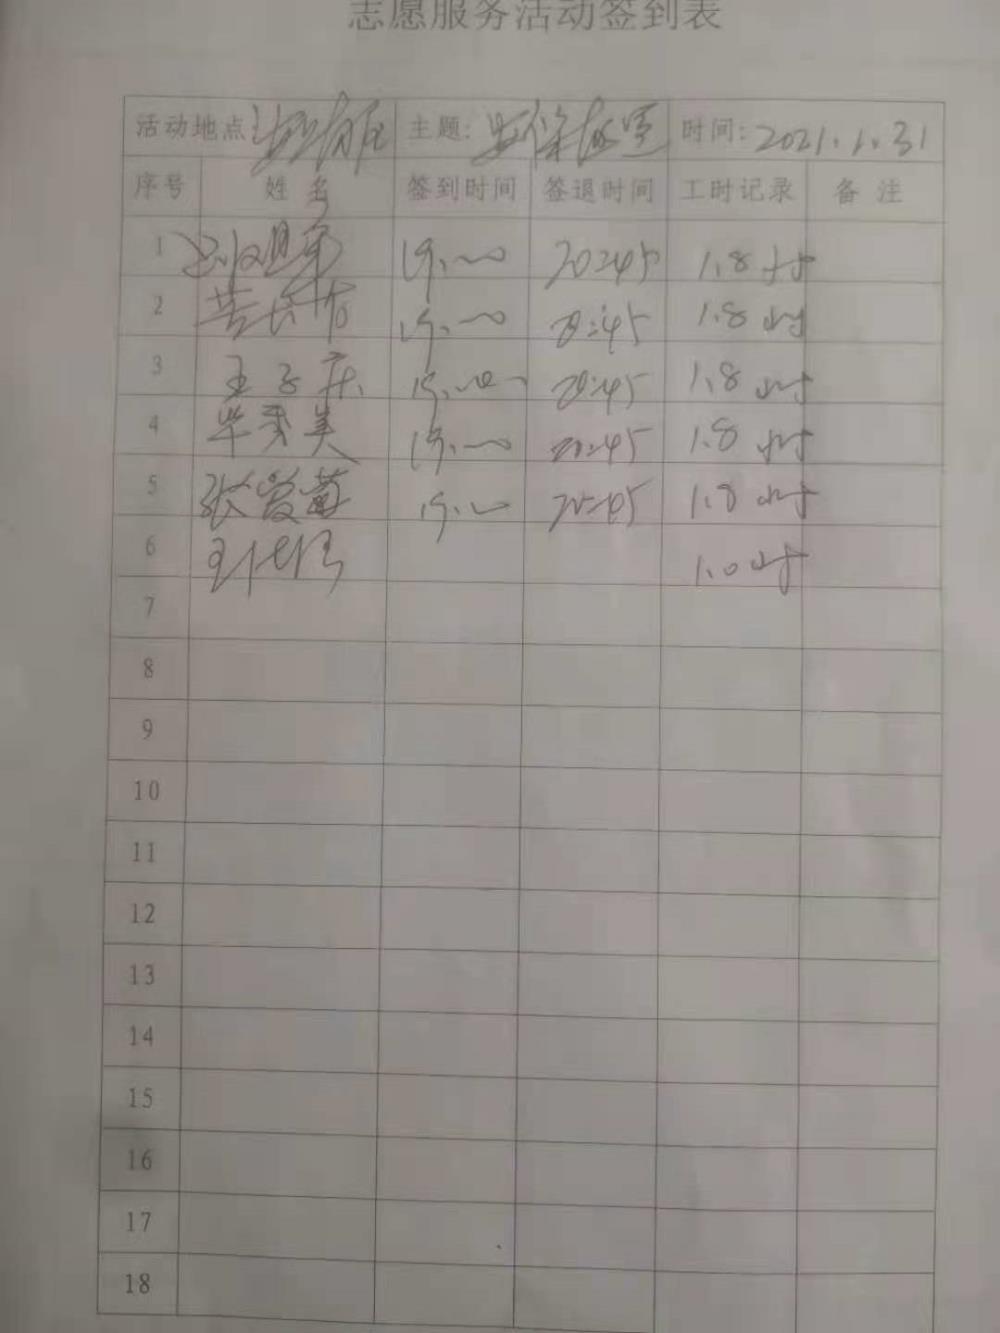 志愿服务活动签到表
活动地点 主题: 时间: 2021.1.31
序号 姓名 签到时间 签退时间 工时记录 备注
1 19:00 20:45 1.8小时
2 19:00 20:45 1.8小时
3 19:00 20:45 1.8小时
4 毕秀美 19:00 20:45 1.8小时
5 张爱莲 19:00 20:45 1.8小时
6 1.0小时
7
8
9
10
11
12
13
14
15
16
17
18